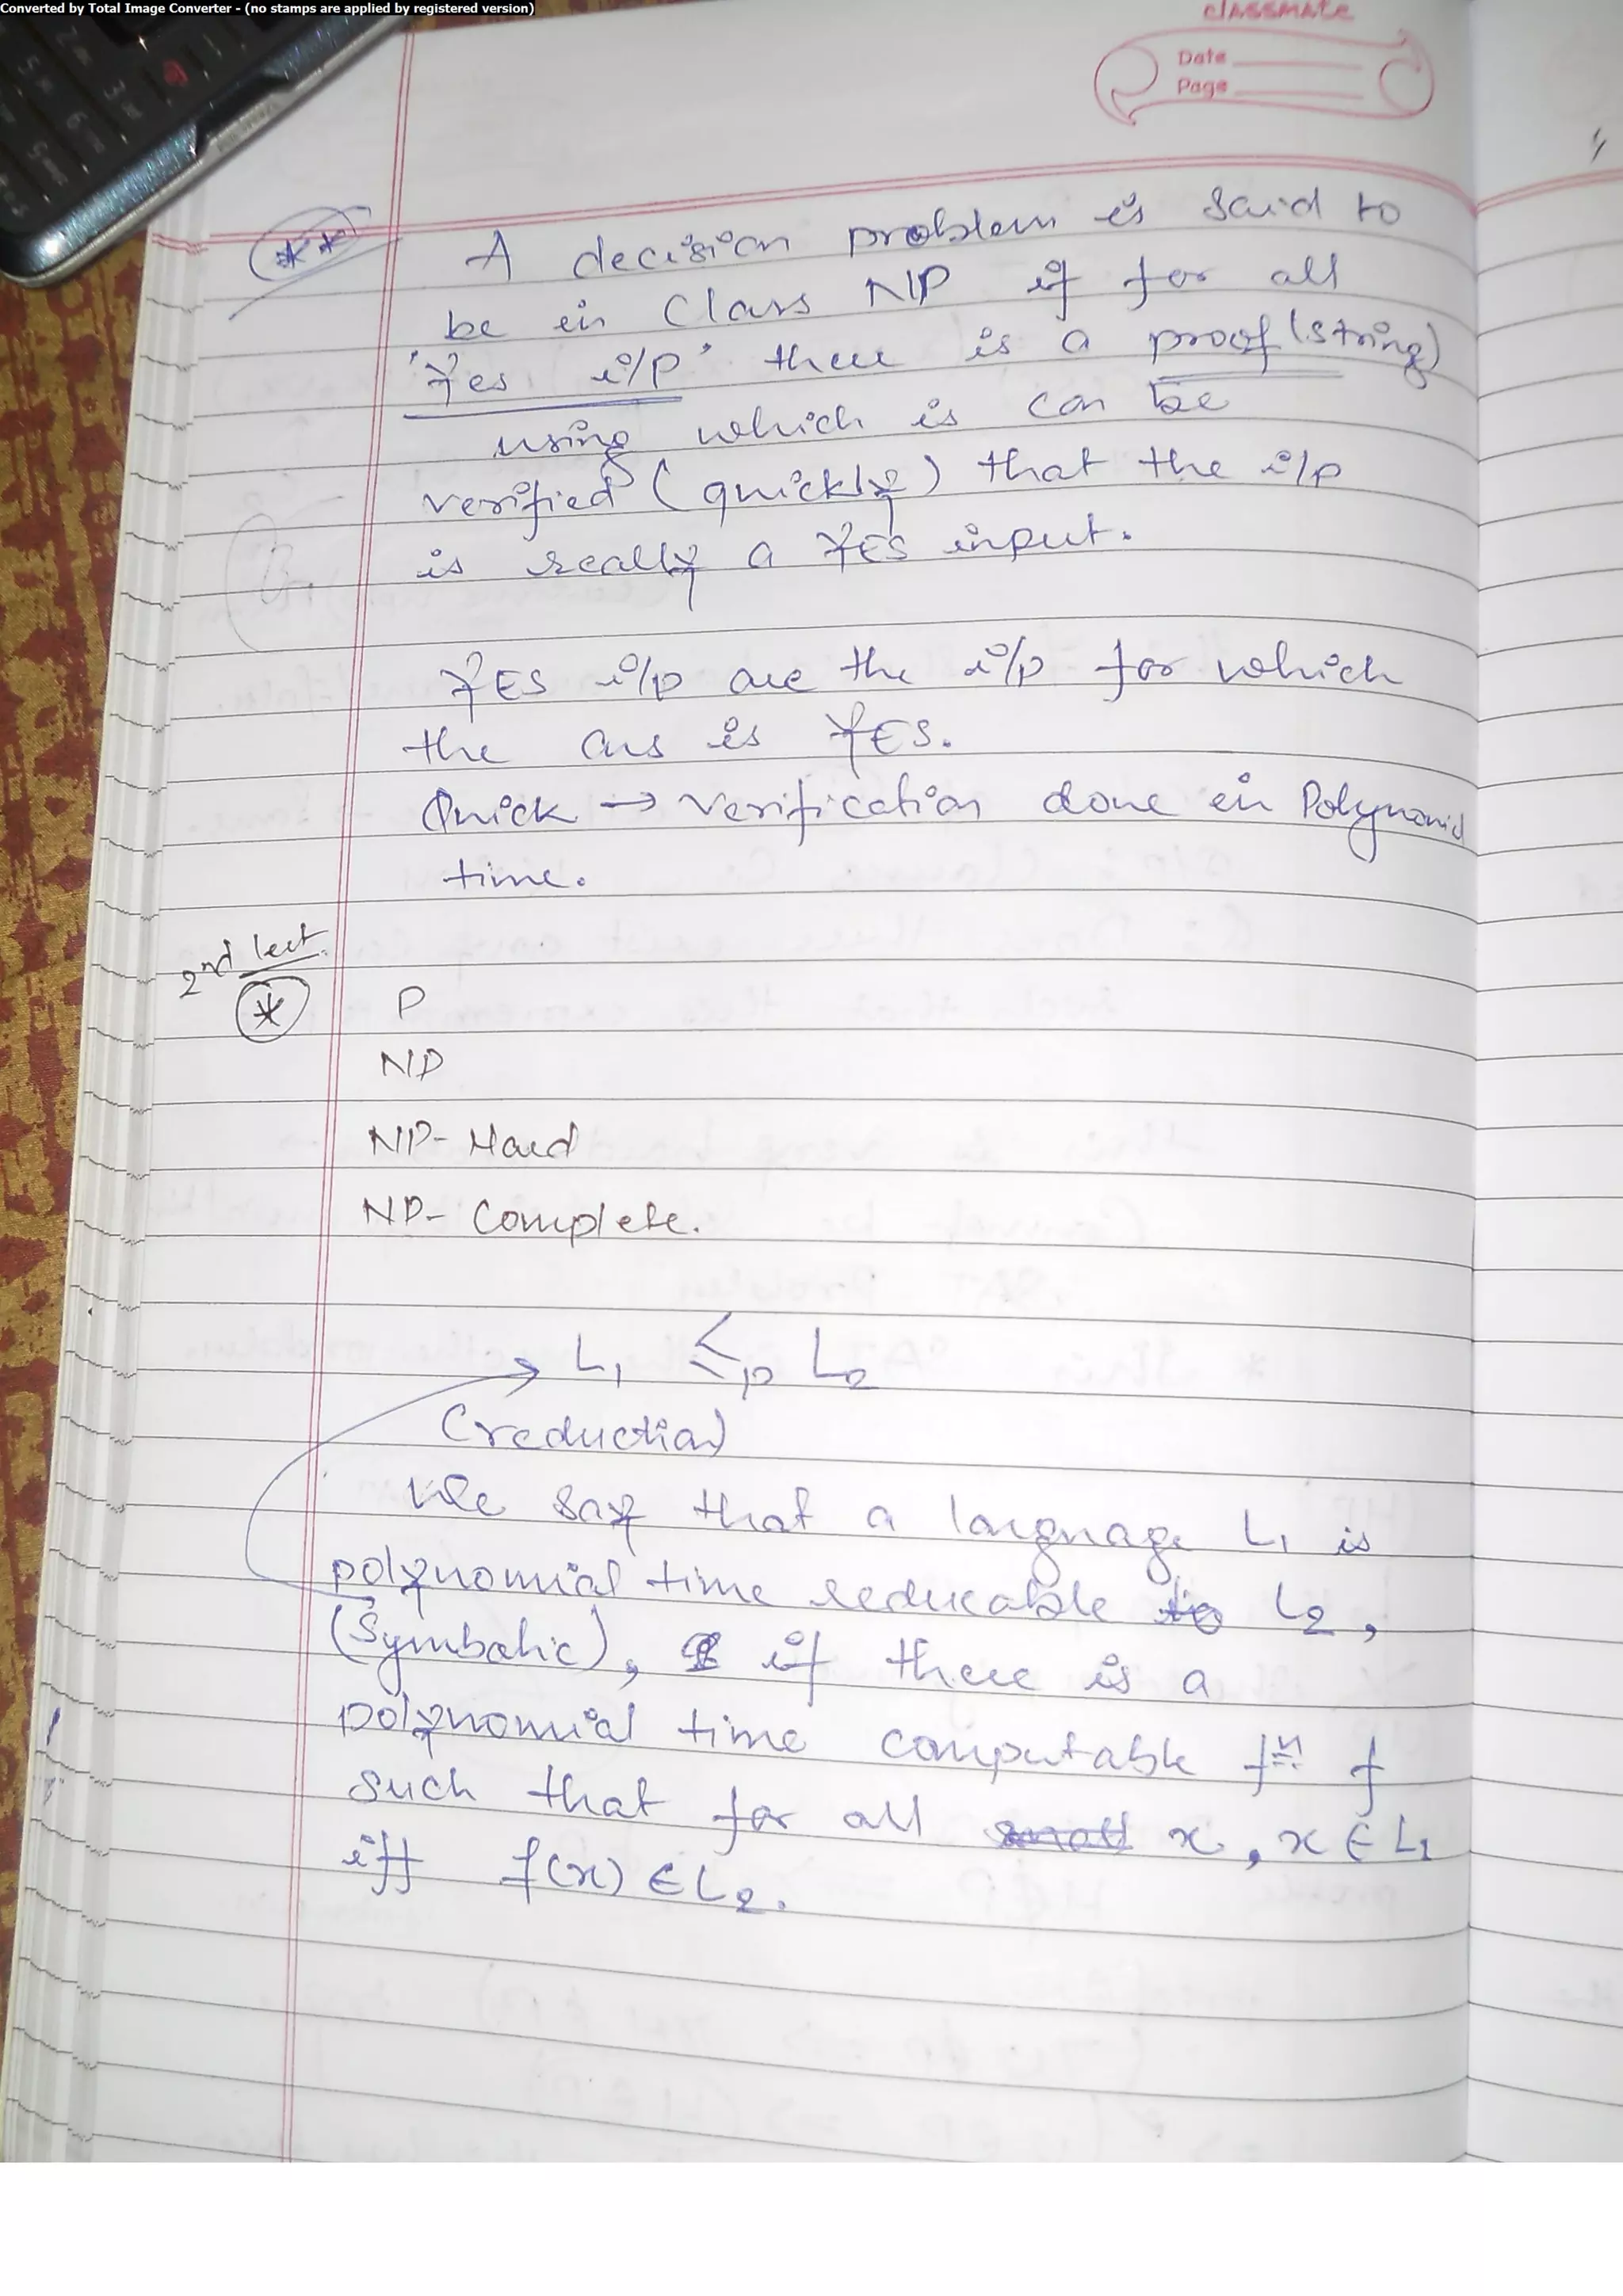 Converted by Total Image Converter - (no stamps are applied by registered version)
classmate
Date
Page
** A decision problem is said to
be in Class NP if for all
'Yes i/p' there is a proof (string)
using which is can be
verified (quickly) that the i/p
is really a YES input.
YES i/p are the i/p for which
the ans is YES.
Quick → verification done in Polynomial
time.
2nd lect.
* P
NP
NP-Hard
NP-Complete.
L1 ≤p L2
(reduction)
We say that a language L1 is
polynomial time reducable to L2,
(Symbolic), if there is a
polynomial time computable fn f
such that for all small x, x ∈ L1
iff f(x) ∈ L2.